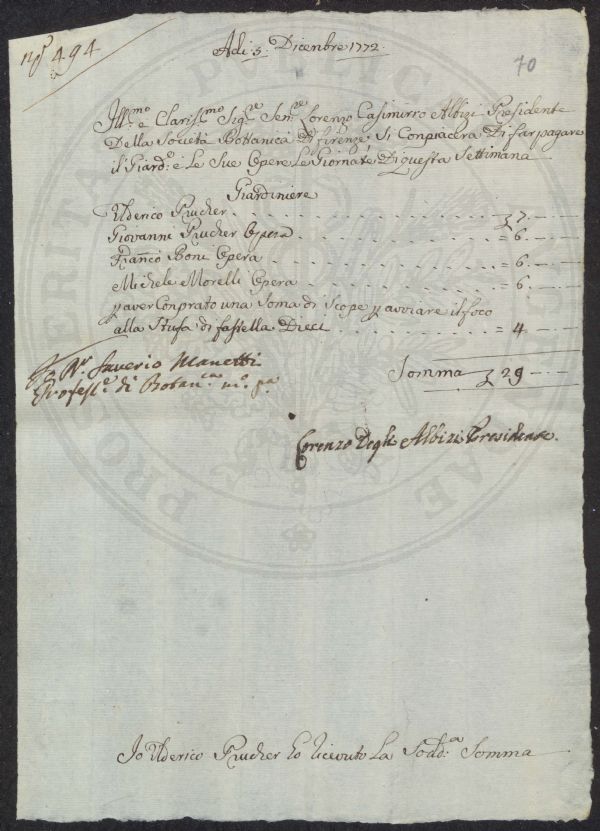 nº 494
Adi: 5: Dicembre 1772.
70
Ill:mo e Claris:mo Sig:re Sen:re Lorenzo Casimirro Albizi Presidente
Della Società Bottanica Di firenze; Si Conpiacerà Di far pagare
il Giard:e e Le Sue Opere Le Giornate Di questa Settimana
Giardiniere
Ulderico Prucher . . . . . . . . . . 7. —
Giovanni Prucher Opera . . . . . . . = 6. —
Franco Boni Opera . . . . . . . . 6. —
Michele Morelli Opera . . . . . . . = 6. —
p aver Conprato una Soma di Scope p avviare il foco
alla Stufa di fastella Dieci . . . . . = 4 —
Somma 29 —
Io Dr. Saverio Manetti
Profess:e di Botan:ca m:o pa
Lorenzo Degli Albizi Presidente.
Io Ulderico Prucher ho riceuto La Sodd:a Somma
PRO VERITATE PUBLICAE